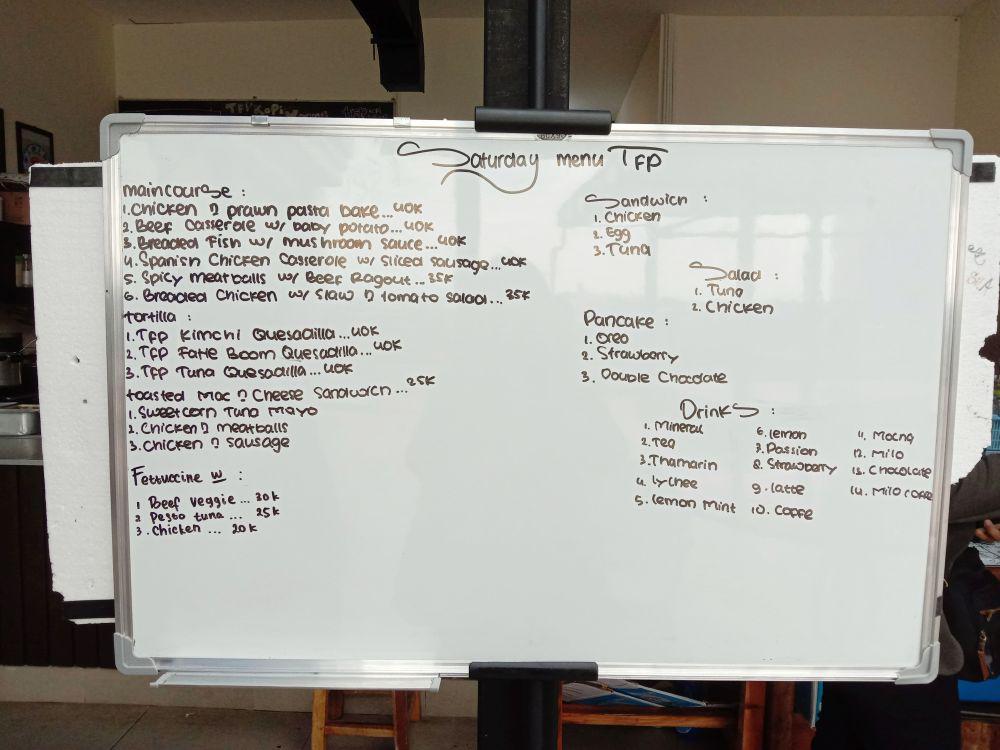 TFP KOPI
Saturday menu TFP
maincourse :
1. Chicken n prawn pasta bake... 40K
2. Beef Casserole w/ baby potato... 40K
3. Breaded Fish w/ mushroom sauce... 40K
4. Spanish Chicken Casserole w/ Sliced sausage... 40K
5. Spicy meatballs w/ Beef Ragout.. 35K
6. Breaded Chicken w/ Slaw n tomato salad... 35K
tortilla :
1. TFP Kimchi Quesadilla... 40K
2. TFP Fatte Boom Quesadilla... 40K
3. TFP Tuna Quesadilla... 40K
toasted Mac n Cheese Sandwich... 25K
1. Sweetcorn Tuna Mayo
2. Chicken n meatballs
3. Chicken n sausage
Fettuccine w :
1 Beef veggie ... 30k
2 Pesto tuna ... 25k
3. Chicken ... 20k
Sandwich :
1. Chicken
2. Egg
3. Tuna
Salad :
1. Tuna
2. Chicken
Pancake :
1. Oreo
2. Strawberry
3. Double Chocolate
Drinks :
1. Mineral
2. Tea
3. Thamarin
4. Lychee
5. Lemon mint
6. Lemon
7. Passion
8. Strawberry
9. Latte
10. Coffe
11. Mocha
12. Milo
13. Chocolate
14. Milo coffe